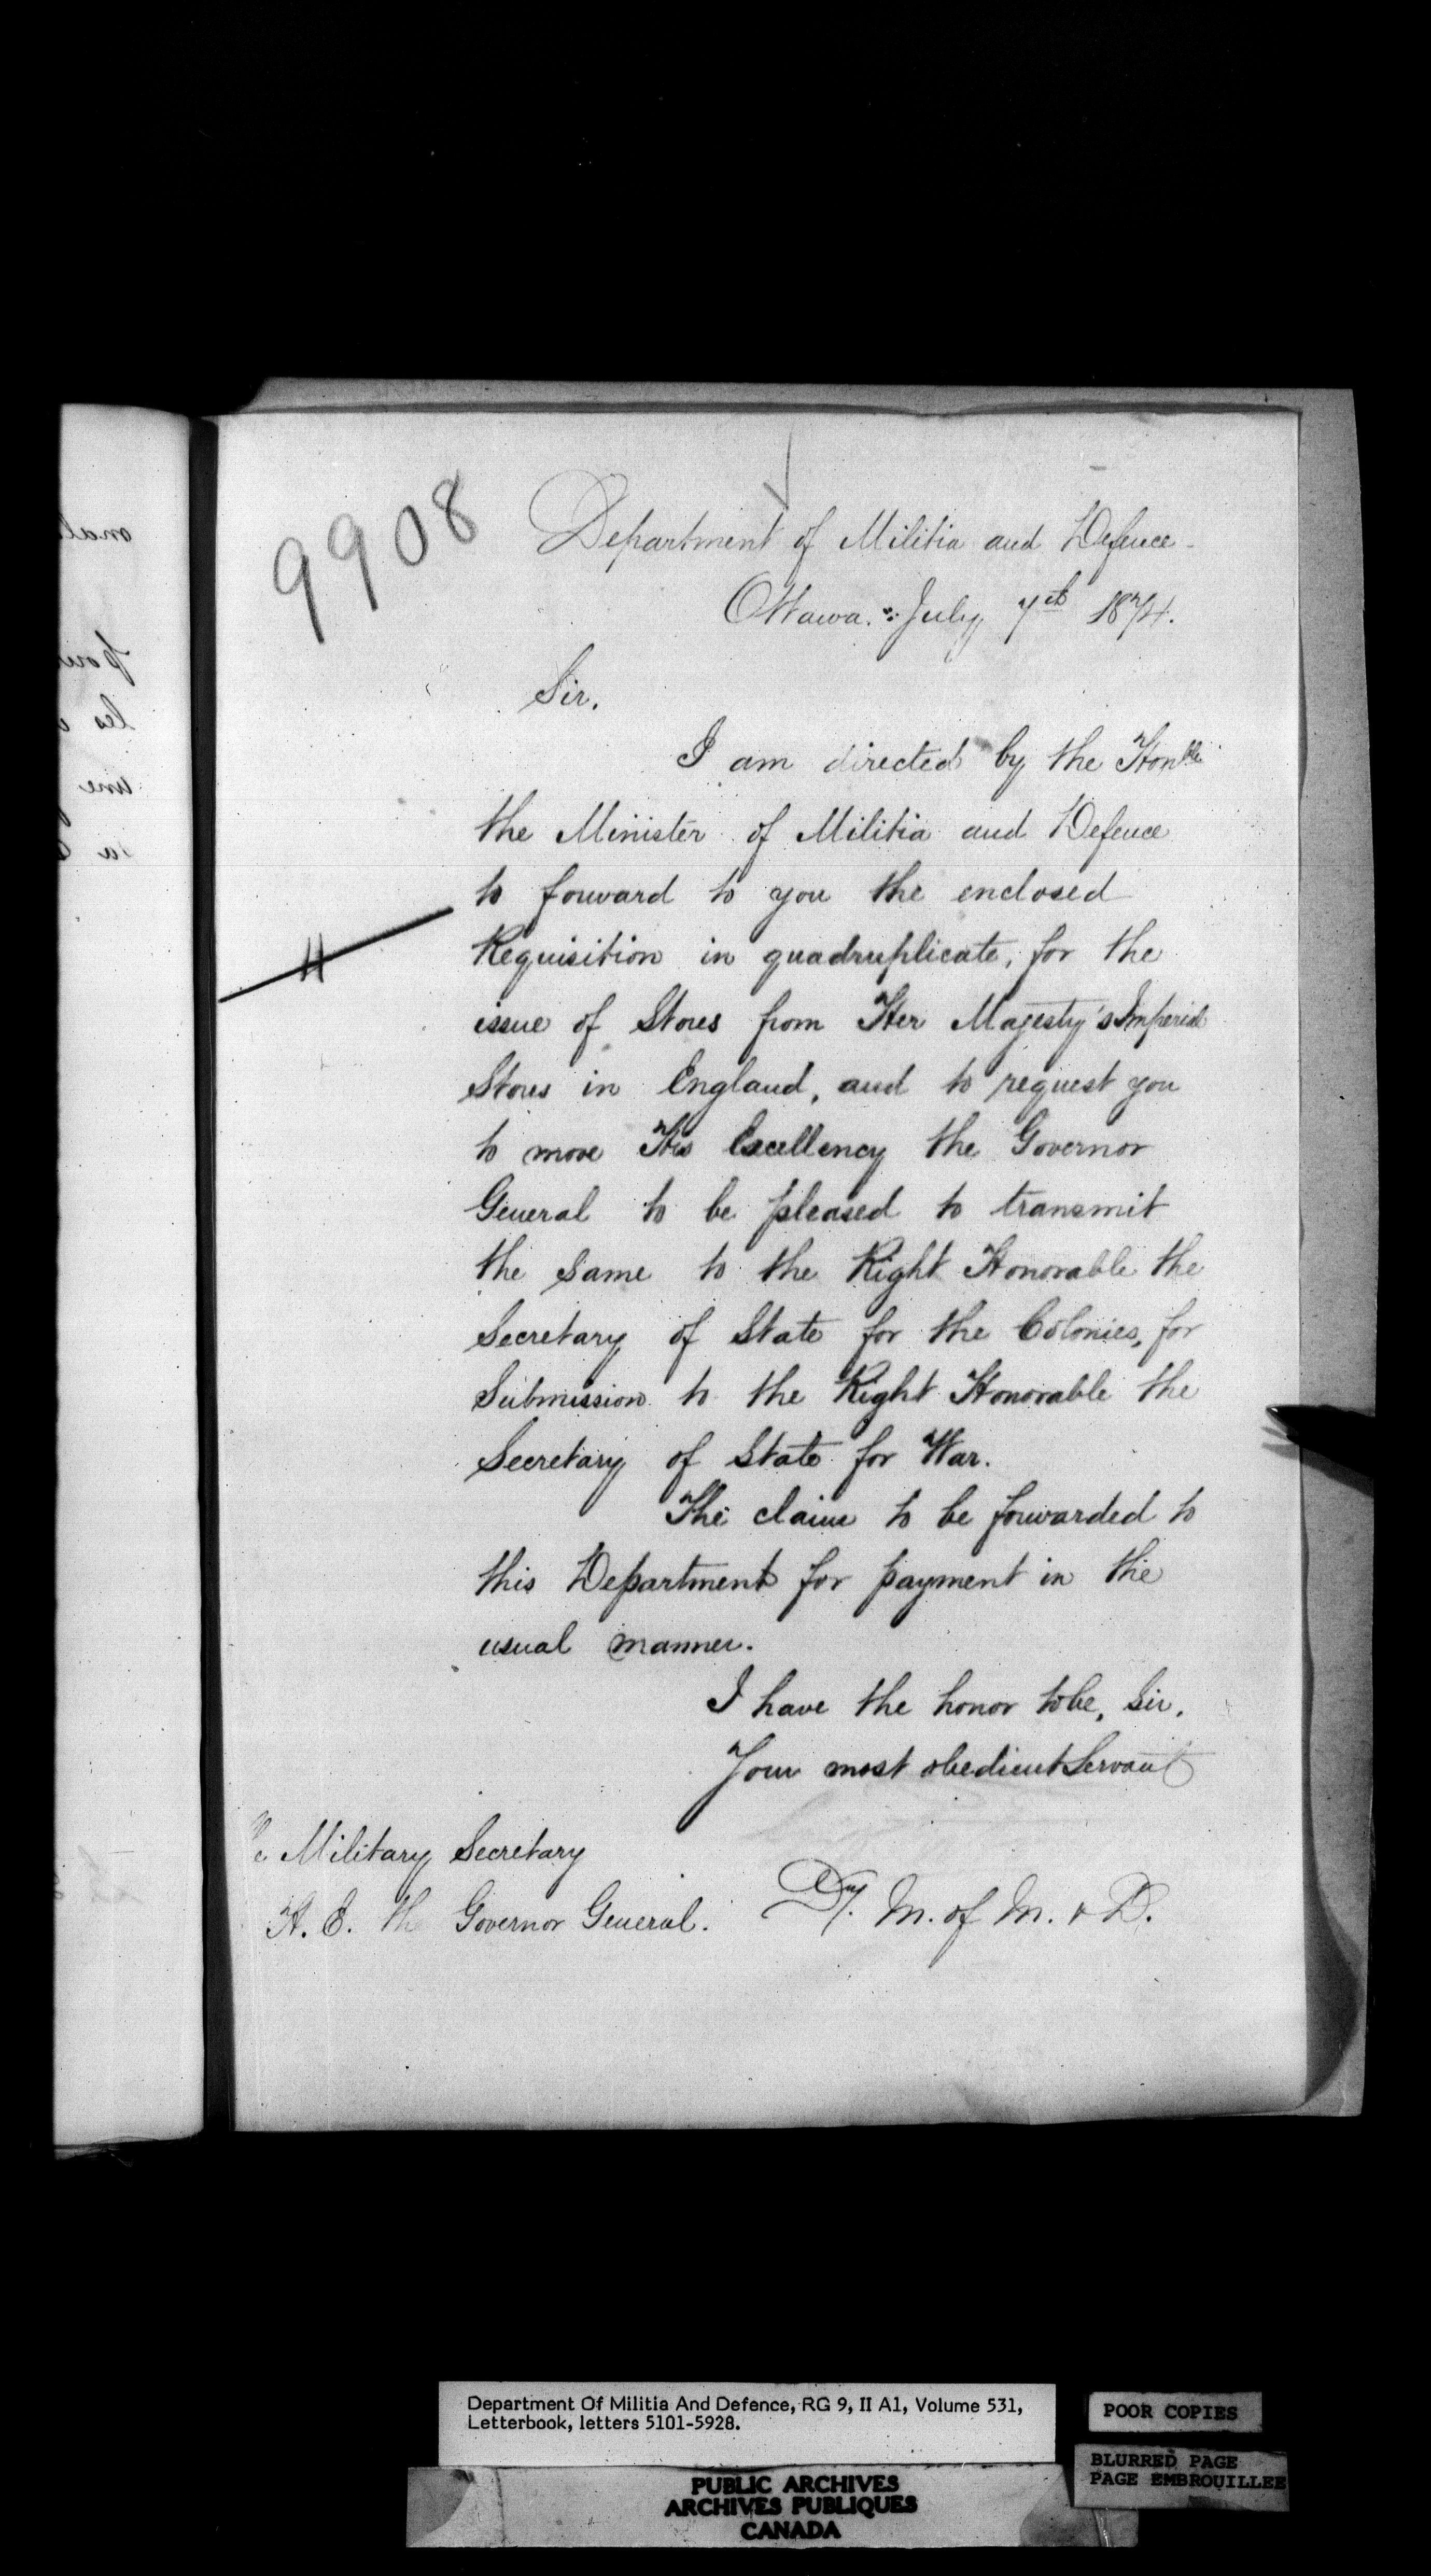 9908
Department of Militia and Defence
Ottawa. July 7th 1874.
Sir,
I am directed by the Honble
the Minister of Militia and Defence
to forward to you the enclosed
Requisition in quadruplicate, for the
issue of Stores from Her Majesty's Imperial
Stores in England, and to request you
to move His Excellency the Governor
General to be pleased to transmit
the same to the Right Honorable the
Secretary of State for the Colonies, for
Submission to the Right Honorable the
Secretary of State for War.
The claim to be forwarded to
this Department for payment in the
usual manner.
I have the honor to be, Sir,
Your most obedient Servant
Military Secretary
H. E. the Governor General.
Dy. M. of M. & D.
Department Of Militia And Defence, RG 9, II A1, Volume 531,
Letterbook, letters 5101-5928.
POOR COPIES
BLURRED PAGE
PAGE EMBROUILLEE
PUBLIC ARCHIVES
ARCHIVES PUBLIQUES
CANADA